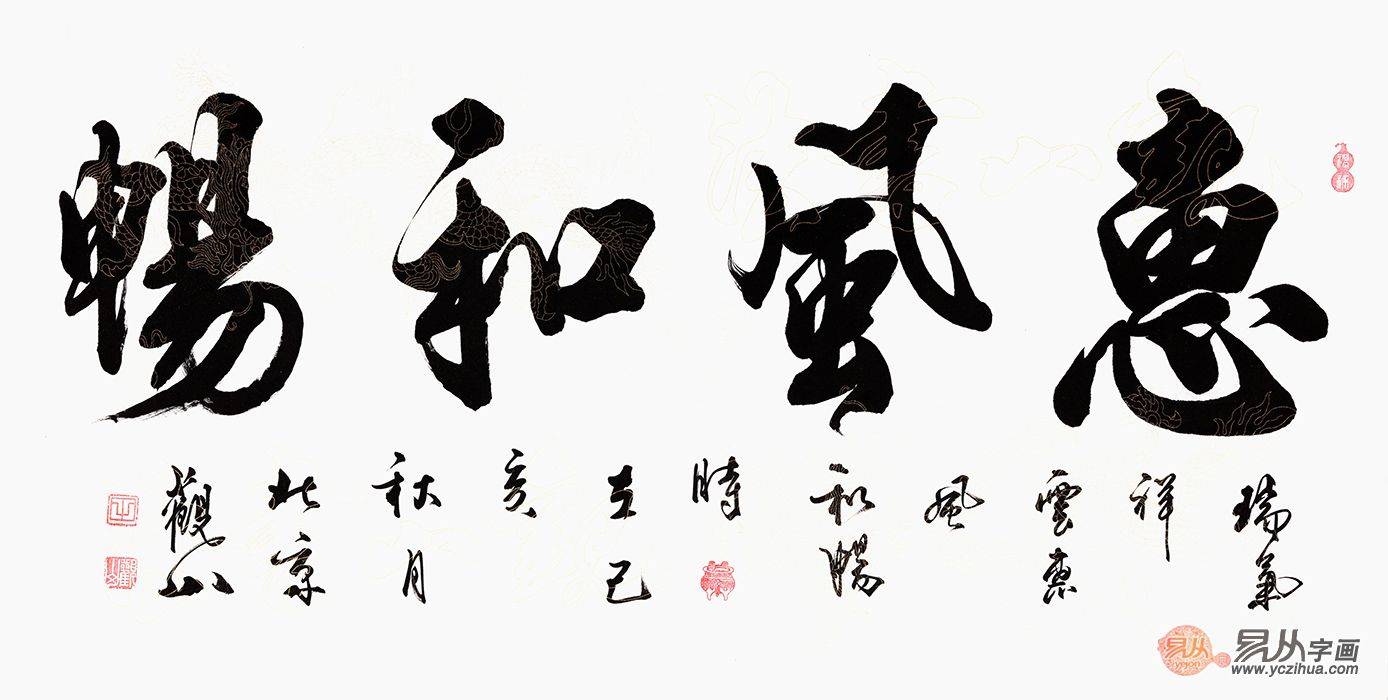 惠風和暢
瑞氣
祥
雲惠
風
和暢
時
在己
亥
秋月
北京
觀山
易从
易从字画
www.yczihua.com